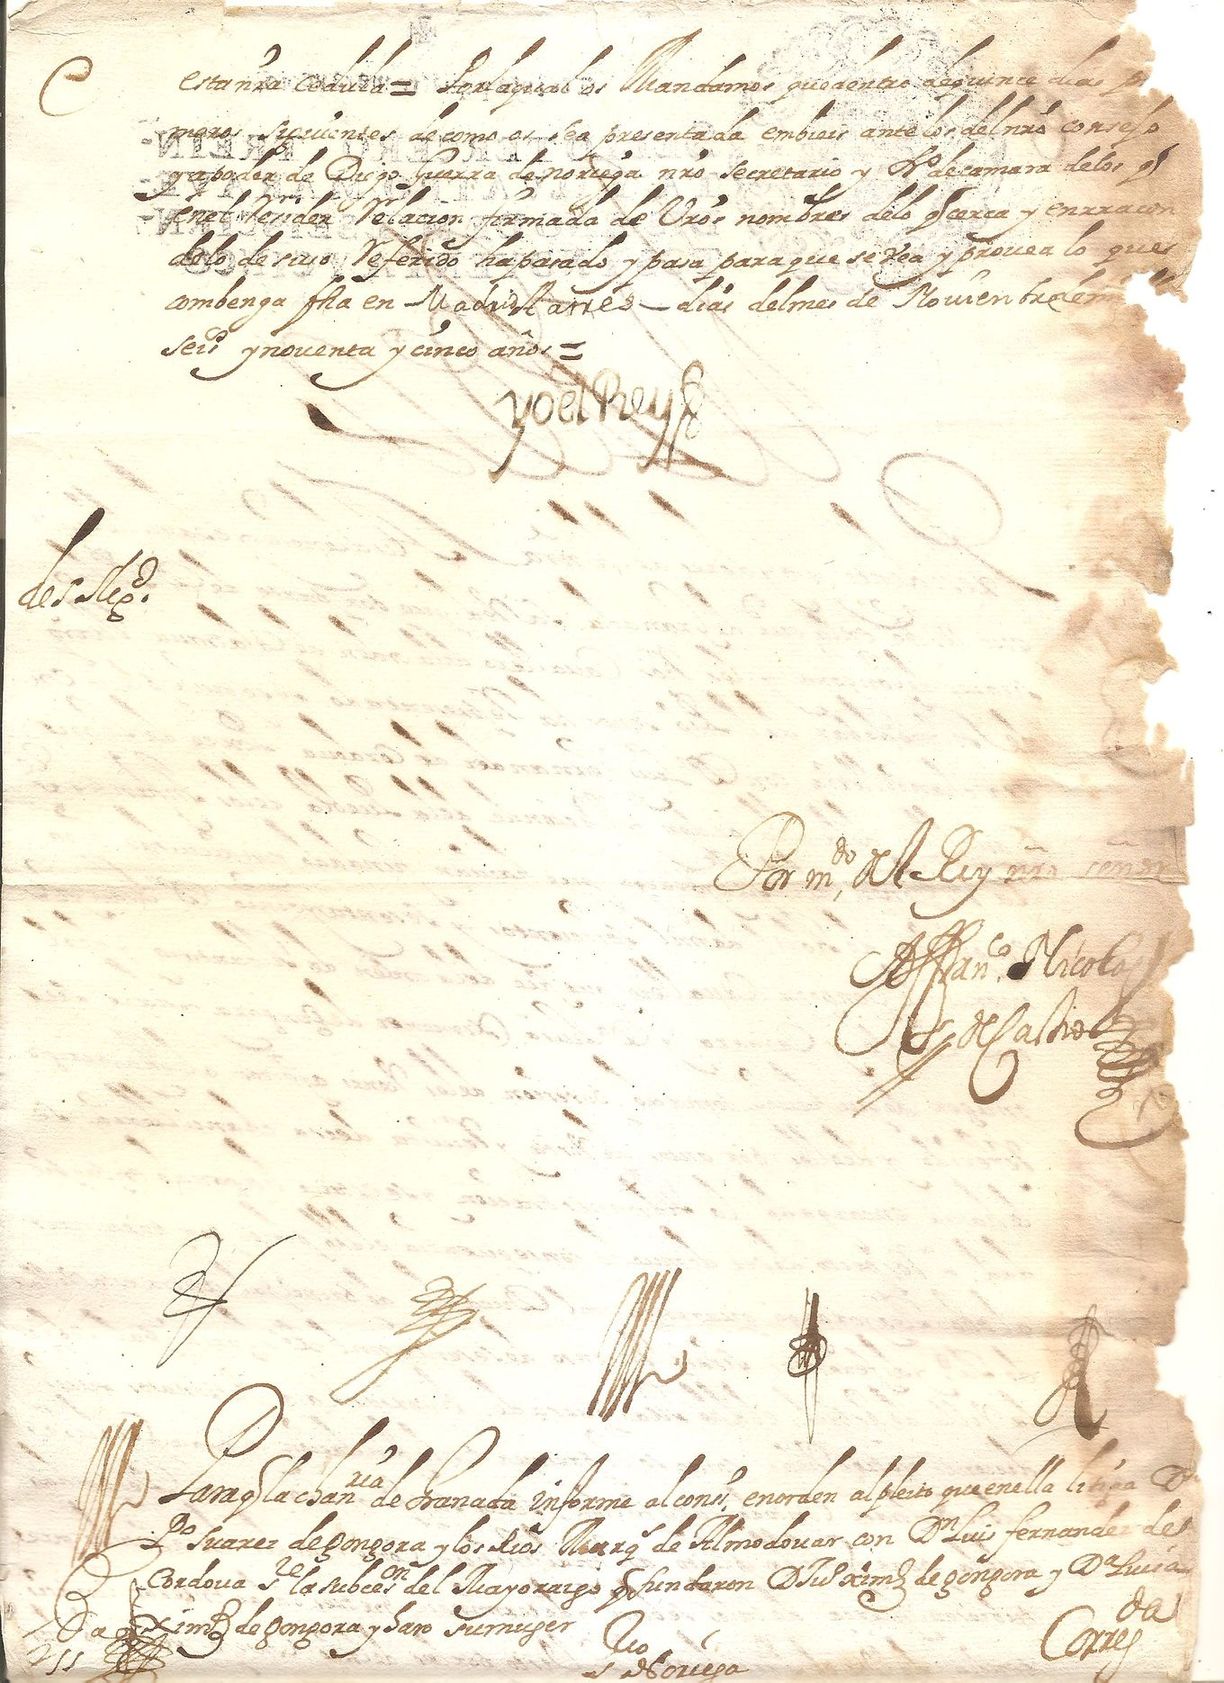 esta nra Cedula = Por la qual os Mandamos que dentro de quince dias
meros siguientes de como os sea presentada embieis ante los del nro consejo
y a poder de Diego Guerra de noriega nro secretario y de camara de los q
en el Residen Relacion firmada de Vros nombres de lo q cerca y en rracon
de lo de suso Referido ha pasado y pasa para que se vea y provea lo que
combenga fha en Madrid A tres dias del mes de Nouienbre de mi
seis y nouenta y cinco años =
Yo el Rey
de s Mgd.
Por mdo del Rey nro señor
Franco Nicolas
de Castro
Para q la chanria de Granada informe al cons, en orden al pleito que en ella litiga Dn
Po suarez de gongora y los Rios Marqs de Almodouar con Dn Luis fernandez de
Cordoua sre la subceson del Mayorazgo q fundaron D Juo ximz de gongora y Da Luisa
ximz de gongora y haro su muger
srio Noriega
Corregda